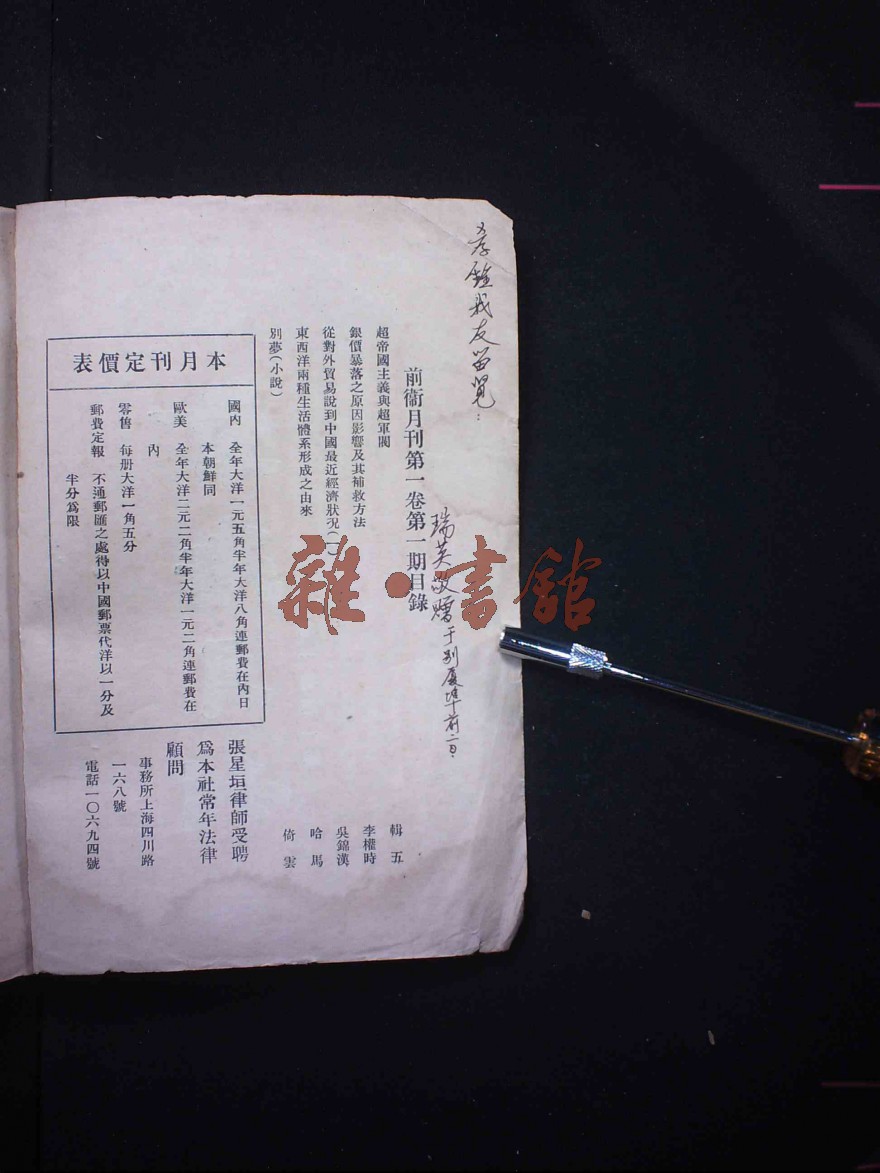 孝銓我友留覽：
瑞英敬贈于別廈埠前二日.
前衞月刊第一卷第一期目錄
超帝國主義與超軍閥 輯五
銀價暴落之原因影響及其補救方法 李權時
從對外貿易說到中國最近經濟狀況(一) 吳錦漢
東西洋兩種生活體系形成之由來 哈馬
別夢(小說) 倚雲
本月刊定價表
國內 全年大洋一元五角半年大洋八角連郵費在內日
本朝鮮同
歐美 全年大洋二元二角半年大洋一元二角連郵費在
內
零售 每册大洋一角五分
郵費定報 不通郵匯之處得以中國郵票代洋以一分及
半分爲限
張星垣律師受聘
爲本社常年法律
顧問
事務所上海四川路
一六八號
電話一〇六九四號
雜·書館